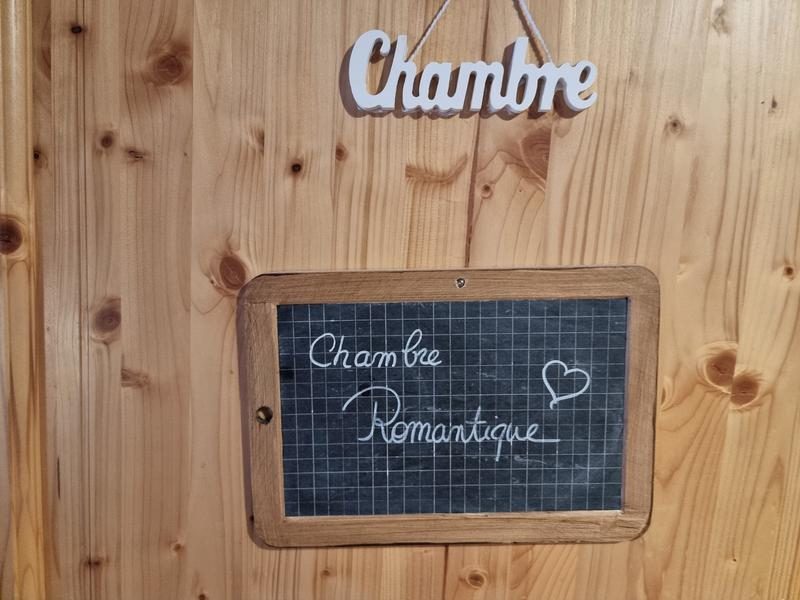 Chambre
Chambre
Romantique